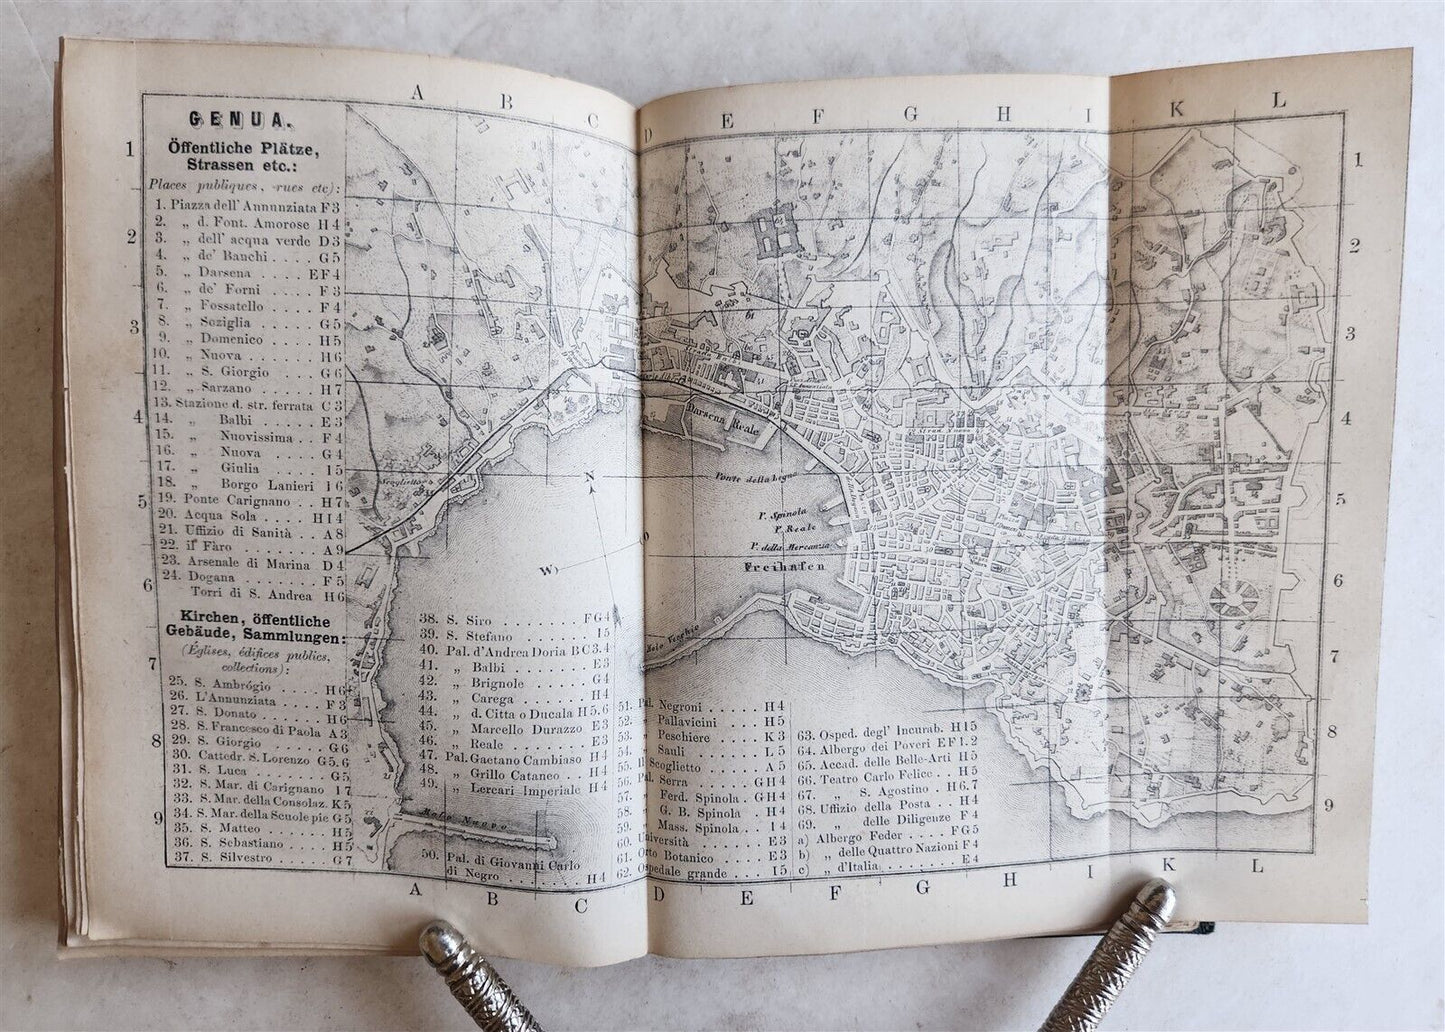 A B C D E F G H I K L
GENUA.
Öffentliche Plätze,
Strassen etc.:
(Places publiques, rues etc):
1. Piazza dell' Annunziata F 3
2. „ d. Font. Amorose H 4
3. „ dell' acqua verde D 3
4. „ de' Banchi . . . . G 5
5. „ Darsena . . . . . E F 4
6. „ de' Forni . . . . . F 3
7. „ Fossatello . . . . F 4
8. „ Soziglia . . . . . G 5
9. „ Domenico . . . . H 5
10. „ Nuova . . . . . . H 6
11. „ S. Giorgio . . . . G 6
12. „ Sarzano . . . . . H 7
13. Stazione d. str. ferrata C 3
14. „ Balbi . . . . . E 3
15. „ Nuovissima . . F 4
16. „ Nuova . . . . G 4
17. „ Giulia . . . . I 5
18. „ Borgo Lanieri I 6
19. Ponte Carignano . . H 7
20. Acqua Sola . . . . H I 4
21. Uffizio di Sanità . . A 8
22. il Fàro . . . . . . . A 9
23. Arsenale di Marina D 4
24. Dogana . . . . . . . F 5
Torri di S. Andrea H 6
Kirchen, öffentliche
Gebäude, Sammlungen:
(Églises, édifices publics,
collections):
25. S. Ambrógio . . . . H 6
26. L'Annunziata . . . . F 3
27. S. Donato . . . . . H 6
28. S. Francesco di Paola A 3
29. S. Giorgio . . . . . G 6
30. Cattedr. S. Lorenzo G 5.6
31. S. Luca . . . . . . G 5
32. S. Mar. di Carignano I 7
33. S. Mar. della Consolaz. K 5
34. S. Mar. della Scuole pie G 5
35. S. Matteo . . . . . H 5
36. S. Sebastiano . . . . H 5
37. S. Silvestro . . . . . G 7
38. S. Siro . . . . . . . F G 4
39. S. Stefano . . . . . . I 5
40. Pal. d'Andrea Doria B C 3. 4
41. „ Balbi . . . . . . E 3
42. „ Brignole . . . . . G 4
43. „ Carega . . . . . H 4
44. „ d. Citta o Ducala H 5. 6
45. „ Marcello Durazzo E 3
46. „ Reale . . . . . . E 3
47. Pal. Gaetano Cambiaso H 4
48. „ Grillo Cataneo . . H 4
49. „ Lercari Imperiale H 4
50. Pal. di Giovanni Carlo
di Negro . . . . . . . H 4
51. Pal. Negroni . . . . . H 4
52. „ Pallavicini . . . . H 5
53. „ Peschiere . . . . K 3
54. „ Sauli . . . . . . L 5
55. Il Scoglietto . . . . . A 5
56. Pal. Serra . . . . . G H 4
57. „ Ferd. Spinola . G H 4
58. „ G. B. Spinola . H 4
59. „ Mass. Spinola . . I 4
60. Università . . . . . E 3
61. Orto Botanico . . . . E 3
62. Ospedale grande . . . I 5
63. Osped. degl' Incurab. H I 5
64. Albergo dei Poveri E F 1. 2
65. Accad. delle Belle-Arti H 5
66. Teatro Carlo Felice . . H 5
67. „ S. Agostino . H 6.7
68. Uffizio della Posta . . H 4
69. „ delle Diligenze F 4
a) Albergo Feder . . . . F G 5
b) „ delle Quattro Nazioni F 4
c) „ d'Italia . . . . . . . E 4
Scoglietto
Darsena Reale
Ponte della legna
P. Spinola
P. Reale
P. della Mercanzia
Freihafen
Molo Vecchio
Molo Nuovo
N
W
1 2 3 4 5 6 7 8 9
1 2 3 4 5 6 7 8 9
A B C D E F G H I K L